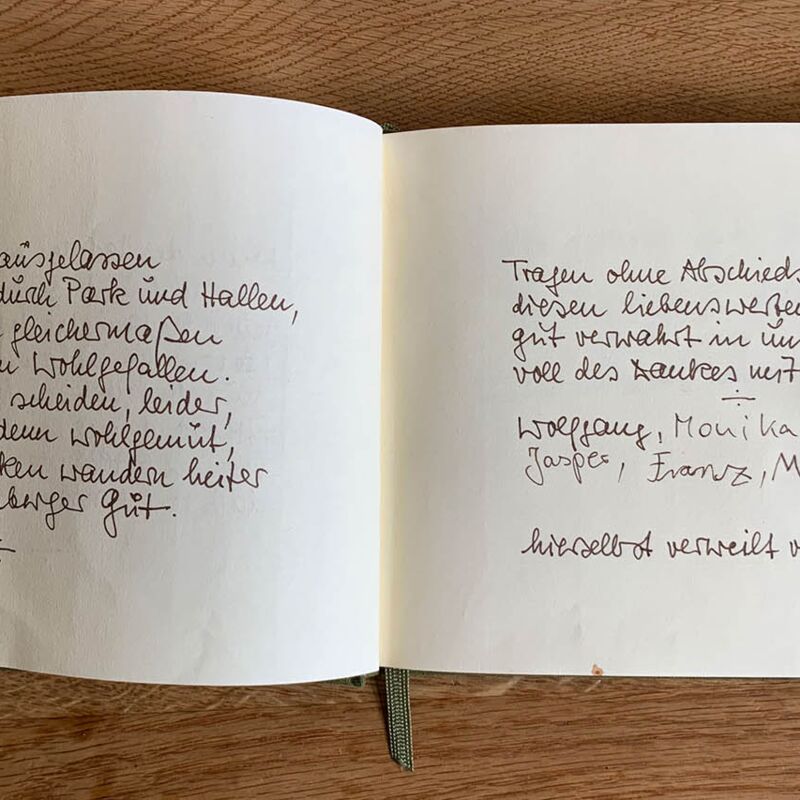 ausgelassen
durch Park und Hallen,
gleichermaßen
Wohlgefallen.
scheiden, leider,
denn wohlgemut,
wandern heiter
Gut.
Tragen ohne Abschieds
diesen liebenswerten
gut verwahrt in un
voll des Dankes mit
Wolfgang, Monika
Jasper, Franz, M
hierselbst verweilt v